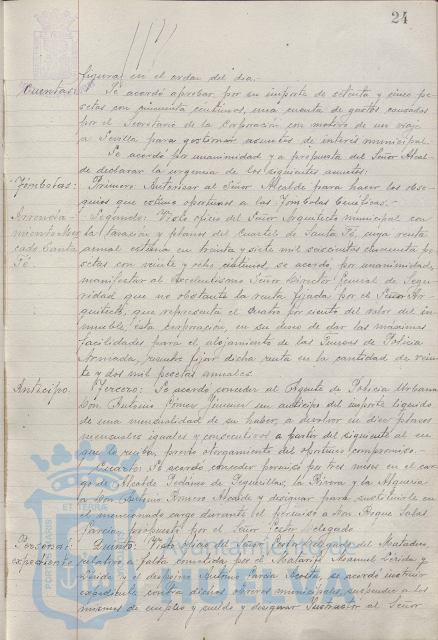 24
figuran en el orden del dia.
Cuentas: Se acordó aprobar, por su importe de setenta y cinco pe-
setas con cincuenta centimos, una cuenta de gastos causados
por el Secretario de la Corporación con motivo de un viaje
a Sevilla para gestionar asuntos de interés municipal.
Se acordó por unanimidad y a propuesta del Señor Alcal-
de declarar la urgencia de los siguientes asuntos:
Tómbolas: Primero: Autorizar al Señor Alcalde para hacer los obse-
quios que estime oportunos a las Tombolas Beneficas.-
Arrenda-
miento
Santa
Fé
Segundo: Visto oficio del Señor Arquitecto municipal con
la tasación y planos del Cuartel de Santa Fé, cuya renta
anual estima en treinta y siete mil seiscientas cincuenta pe-
setas con veinte y ocho centimos, se acordó, por unanimidad,
manifestar al Excelentisimo Señor Director General de Segu-
ridad que no obstante la renta fijada por el Señor Ar-
quitecto, que representa el cuatro por ciento del valor del in-
mueble, esta Corporación, en su deseo de dar las máximas
facilidades para el alojamiento de las Fuerzas de Policia
Armada, resuelve fijar dicha renta en la cantidad de vein-
te y dos mil pesetas anuales.
Anticipo. Tercero: Se acordó conceder al Agente de Policia Urbana
Don Antonio Gómez Jimenez un anticipo del importe liquido
de una mensualidad de su haber, a devolver en diez plazos
mensuales iguales y consecutivos a partir del siguiente al en
que la reciba, previo otorgamiento del oportuno compromiso.-
Cuarto: Se acordó conceder permiso por tres meses en el car-
go de Alcalde Pedáneo de Peguerillas, la Rivera y la Alqueria
a Don Antonio Romero Alcaide y designar para sustituirle en
el mencionado cargo durante el permiso a Don Roque Salas
Garcia, propuesto por el Señor Gestor Delegado.
Personal:
expediente
Quinto: Visto oficio del Señor Gestor Delegado del Matadero
relativo a falta cometida por el Matarife Manuel Lérida y
Lérida y el despojero Antonio Garcia Acosta, se acordó instruir
expediente contra dichos obreros municipales, suspender a los
mismos de empleo y sueldo y designar Instructor al Señor
Ayuntamiento de
HUELVA